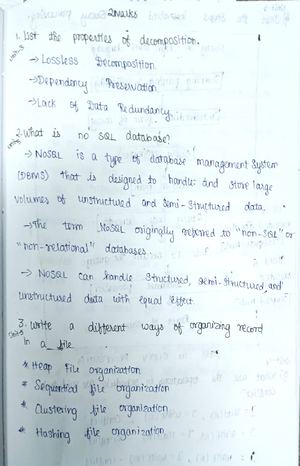 2marks
1. List the properties of decomposition.
Unit-3
→ Lossless Decomposition
→ Dependency Preservation
→ Lack of Data Redundancy.
2. What is no SQL database?
→ NoSQL is a type of database management system
(DBMS) that is designed to handle and store large
volumes of unstructured and semi-structured data.
→ The term NoSQL originally referred to "non-SQL" or
"non-relational" databases.
→ NoSQL can handle structured, semi-structured, and
unstructured data with equal effect.
3. write a different ways of organizing record
in a file.
* Heap File organization
* Sequential file organization
* Clustering file organisation
* Hashing file organization